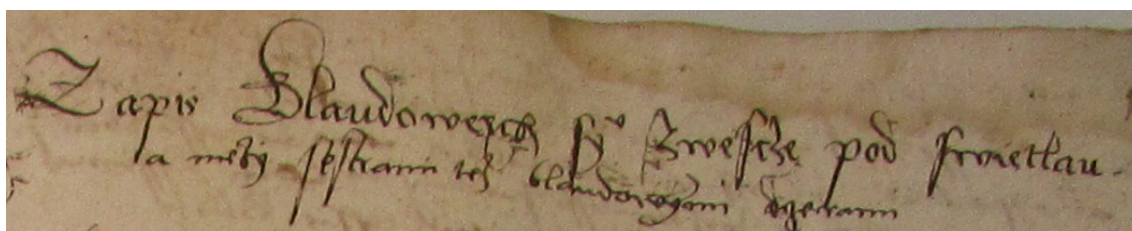 Zapis Blaudowepch sy° Zwesche pod swietlau.
a mezy sestrami tez blaudowymi dcerami